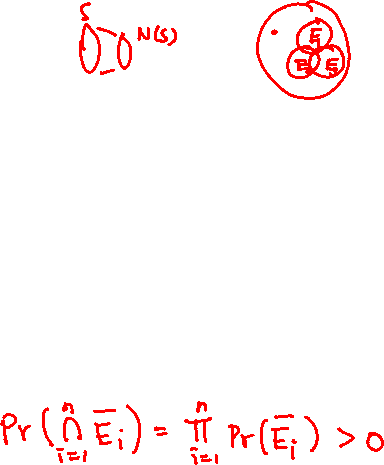 S
N(S)
E
E E
Pr(⋂_{i=1}^{n} Ē_i) = ∏_{i=1}^{n} Pr(Ē_i) > 0